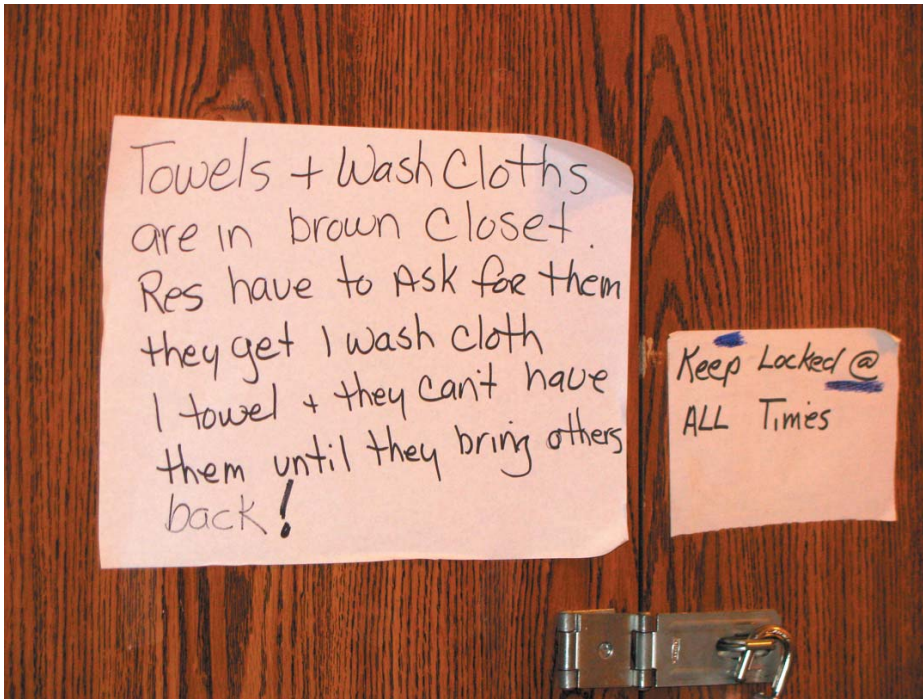 Towels + Wash Cloths
are in brown closet.
Res have to Ask for them
they get 1 wash cloth
1 towel + they can't have
them until they bring others
back!
Keep Locked @
ALL Times